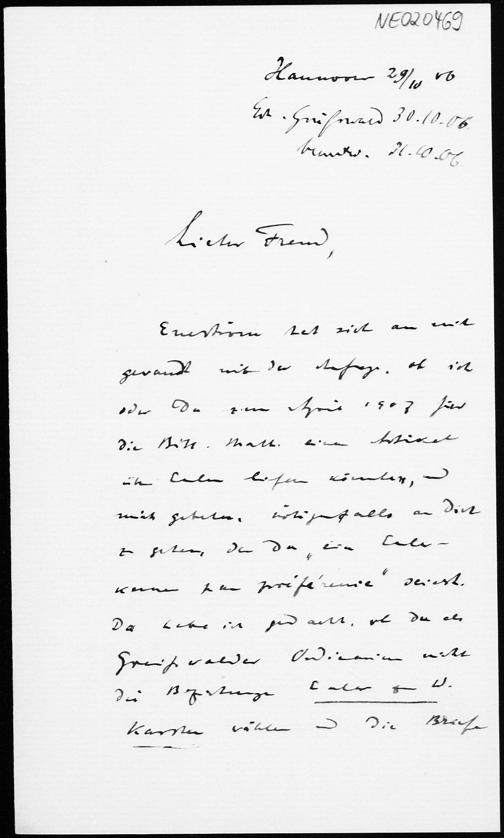 NE020469
Hannover 29/10 06
Erh. Greifswald 30.10.06
beantw. 31.10.06
Lieber Freund,
Eneström hat sich an mich
gewandt mit der Anfrage, ob ich
oder Du zum April 1907 für
die Bibl. Math. einen Artikel
über Euler liefern könnten, und
mich gebeten, nötigenfalls an Dich
zu gehen, da Du „ein Euler-
kenner par préférence" seiest.
Da habe ich gedacht, ob Du als
Greifswalder Ordinarius nicht
die Beziehungen Euler zu W.
Karsten wählen und die Briefe